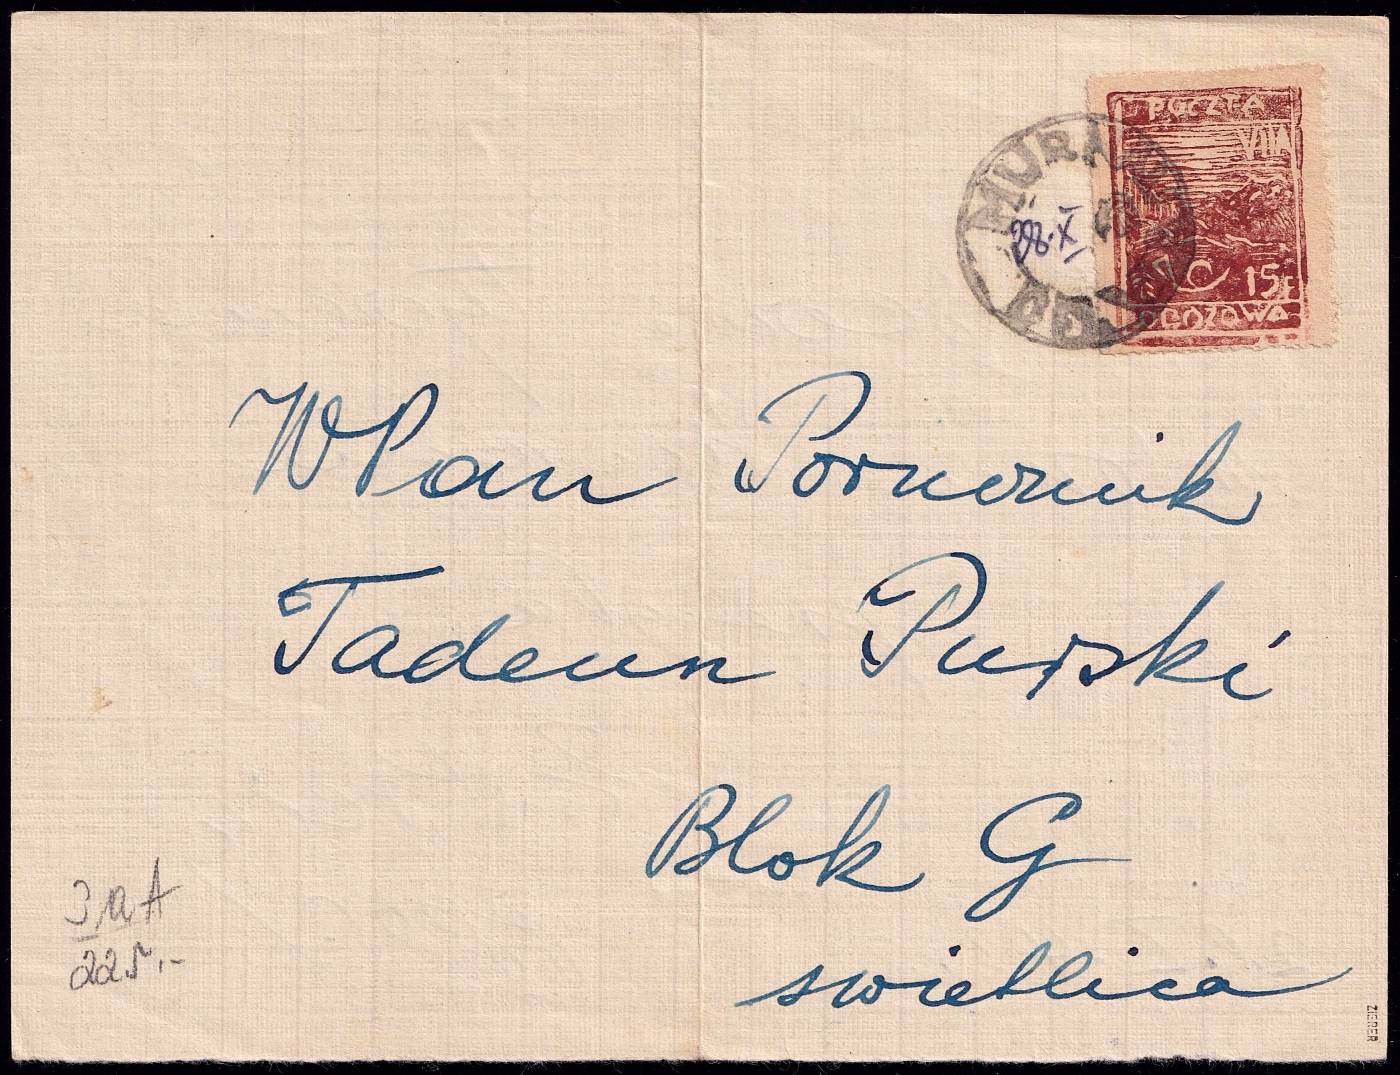 POCZTA
VIIA
15F
OBOZOWA
MURNAU
28.X
WPan Porucznik
Tadeusz Purski
Blok G
świetlica
3a A
225.-
ZIERER